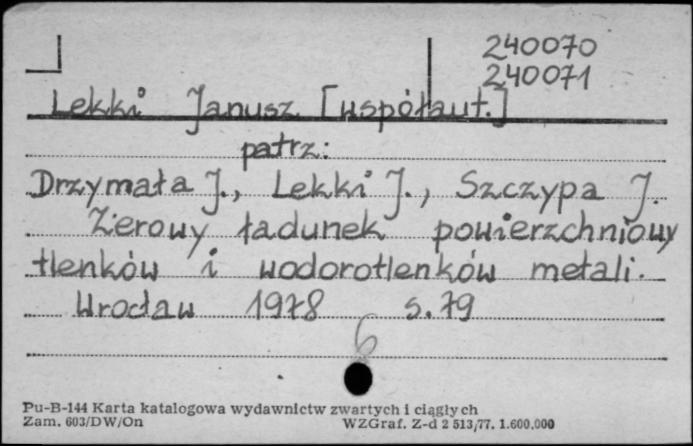 240070
240071
Lekki Janusz [współaut.]
patrz:
Drzymała J., Lekki J., Szczypa J.
Zerowy ładunek powierzchniowy
tlenków i wodorotlenków metali.
Wrocław 1978 s. 79
6
Pu-B-144 Karta katalogowa wydawnictw zwartych i ciągłych
Zam. 603/DW/On WZGraf. Z-d 2 513/77. 1.600.000